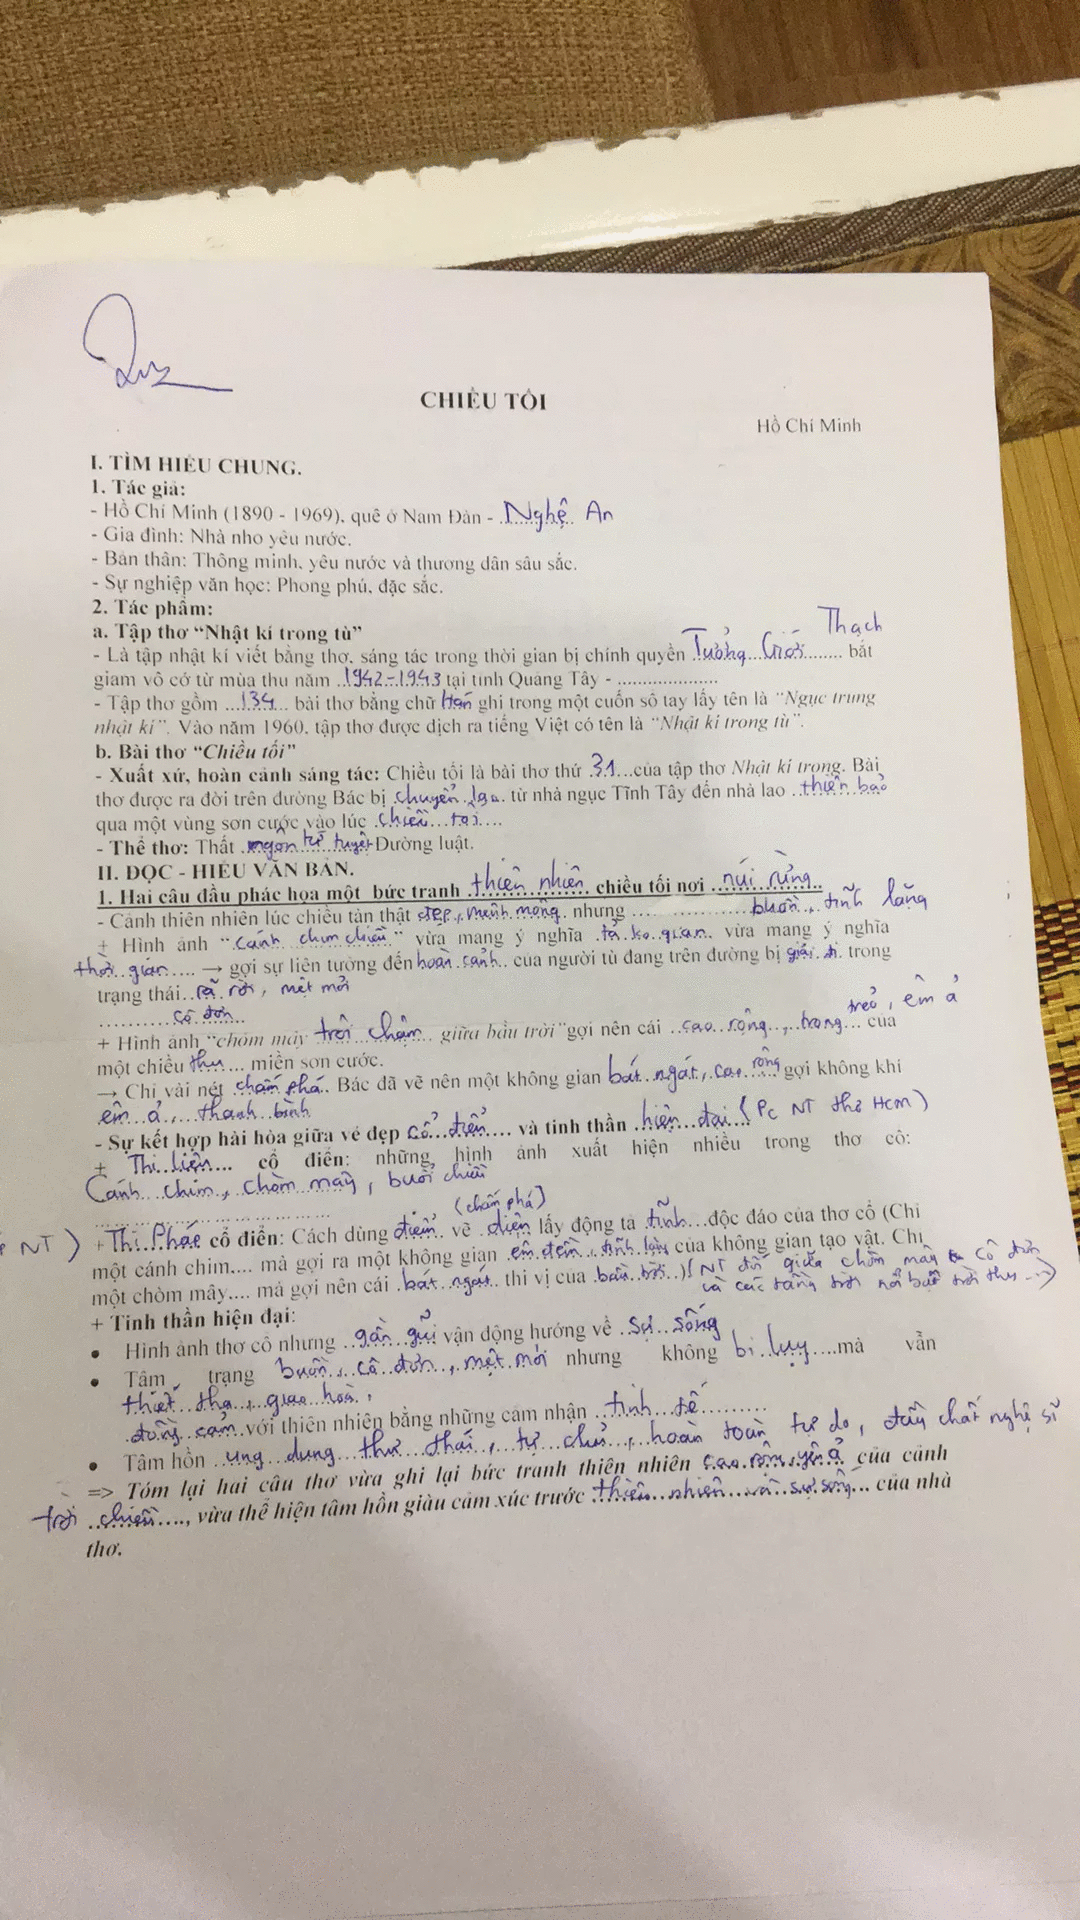 CHIỀU TỐI
Hồ Chí Minh
I. TÌM HIỂU CHUNG.
1. Tác giả:
- Hồ Chí Minh (1890 - 1969), quê ở Nam Đàn - Nghệ An
- Gia đình: Nhà nho yêu nước.
- Bản thân: Thông minh, yêu nước và thương dân sâu sắc.
- Sự nghiệp văn học: Phong phú, đặc sắc.
2. Tác phẩm:
a. Tập thơ “Nhật kí trong tù”
- Là tập nhật kí viết bằng thơ, sáng tác trong thời gian bị chính quyền Tưởng Giới Thạch bắt
giam vô cớ từ mùa thu năm 1942-1943 tại tỉnh Quảng Tây - ....................
- Tập thơ gồm ..134.. bài thơ bằng chữ Hán ghi trong một cuốn sổ tay lấy tên là “Ngục trung
nhật kí”. Vào năm 1960, tập thơ được dịch ra tiếng Việt có tên là “Nhật kí trong tù”.
b. Bài thơ “Chiều tối”
- Xuất xứ, hoàn cảnh sáng tác: Chiều tối là bài thơ thứ 31...của tập thơ Nhật kí trong. Bài
thơ được ra đời trên đường Bác bị chuyển lao. từ nhà ngục Tĩnh Tây đến nhà lao ..thiên bảo
qua một vùng sơn cước vào lúc chiều tối....
- Thể thơ: Thất ngôn tứ tuyệt Đường luật.
II. ĐỌC - HIỂU VĂN BẢN.
1. Hai câu đầu phác họa một bức tranh thiên nhiên chiều tối nơi ..núi rừng..
- Cảnh thiên nhiên lúc chiều tàn thật đẹp, mênh mông. nhưng ................. buồn, tĩnh lặng
+ Hình ảnh “cánh chim chiều” vừa mang ý nghĩa .tả ko gian. vừa mang ý nghĩa
thời gian .... → gợi sự liên tưởng đến hoàn cảnh.. của người tù đang trên đường bị giải đi. trong
trạng thái..rã rời, mệt mỏi
..........cô đơn..
+ Hình ảnh “chòm mây trôi chậm.. giữa bầu trời” gợi nên cái ..cao rộng.., trong trẻo, êm ả của
một chiều thu.... miền sơn cước.
→ Chỉ vài nét chấm phá.. Bác đã vẽ nên một không gian bát ngát, cao rộng gợi không khí
êm ả, thanh bình
- Sự kết hợp hài hòa giữa vẻ đẹp cổ điển.... và tinh thần hiện đại (PC NT thơ HCM)
+ Thi liệu.... cổ điển: những hình ảnh xuất hiện nhiều trong thơ cổ:
Cánh chim, chòm mây, buổi chiều
(chấm phá)
NT)
+ Thi Pháp cổ điển: Cách dùng điểm. vẽ .diện lấy động tả tĩnh...độc đáo của thơ cổ (Chỉ
một cánh chim.... mà gợi ra một không gian êm đềm, tĩnh lặng của không gian tạo vật. Chỉ
một chòm mây.... mà gợi nên cái .bát ngát.. thi vị của bầu trời.)(NT đối giữa chòm mây cô đơn
và các tầng trời nổi bật trời thu ...)
+ Tinh thần hiện đại:
• Hình ảnh thơ cổ nhưng ..gần gũi vận động hướng về ..sự..sống
• Tâm trạng buồn, cô đơn.., mệt mỏi nhưng không bi lụy....mà vẫn
thiết tha, giao hoà,
đồng cảm với thiên nhiên bằng những cảm nhận ..tinh tế..........
• Tâm hồn ung dung thư thái, tự chủ, hoàn toàn tự do, đầy chất nghệ sĩ
=> Tóm lại hai câu thơ vừa ghi lại bức tranh thiên nhiên cao rộng, yên ả của cảnh
trời chiều...., vừa thể hiện tâm hồn giàu cảm xúc trước thiên nhiên và sự sống.. của nhà
thơ.